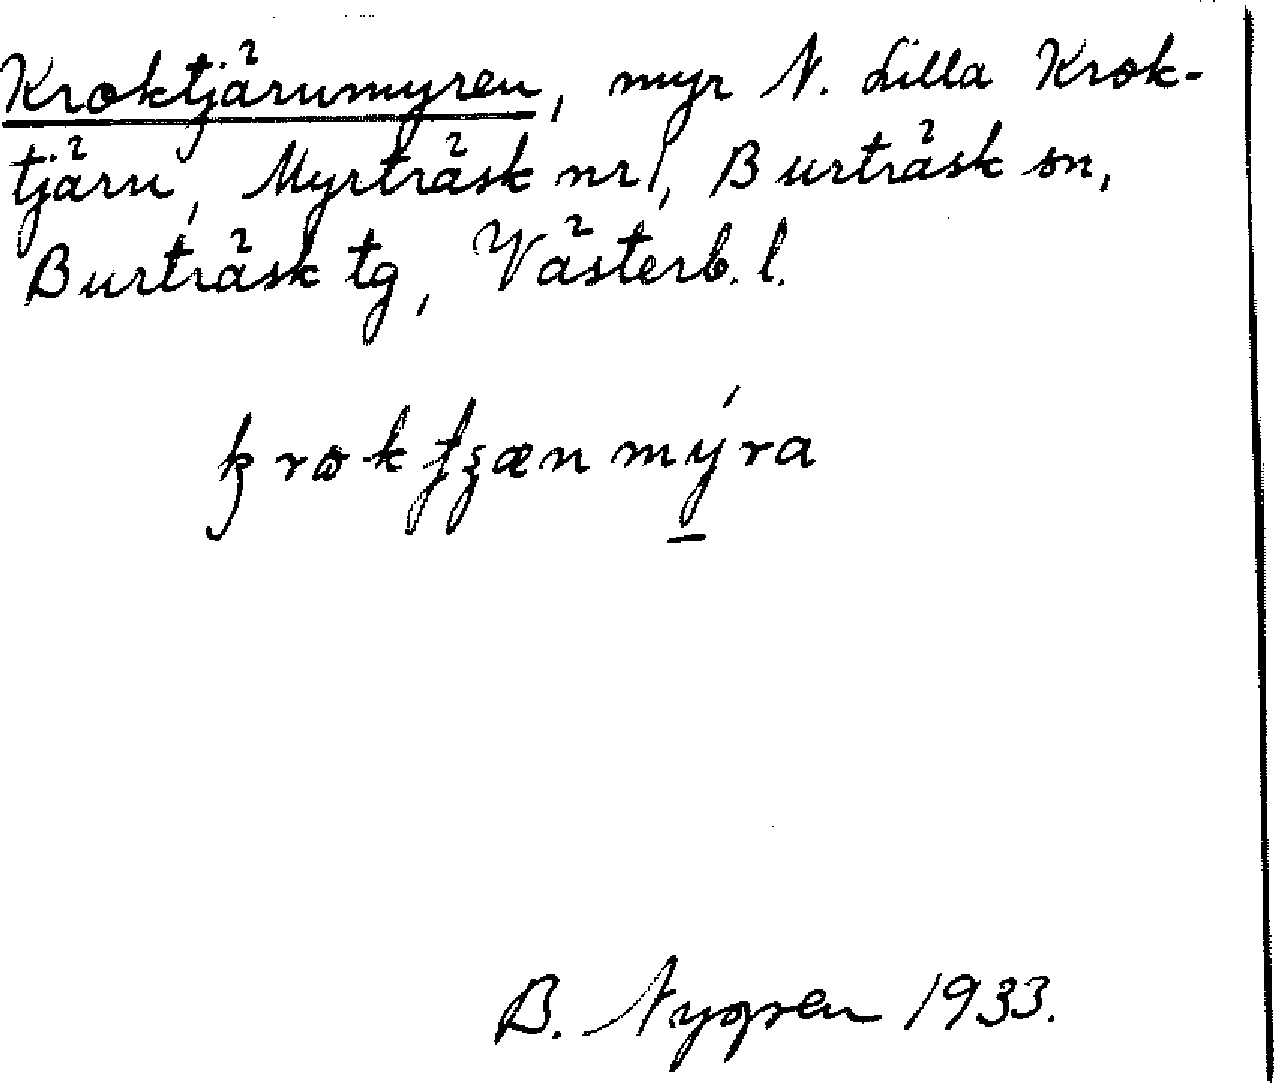 Kroktjärnmyren, myr N. Lilla Krok-
tjärn, Myrträsk nr 1, Burträsk sn,
Burträsk tg, Västerb. l.
B. Nygren 1933.